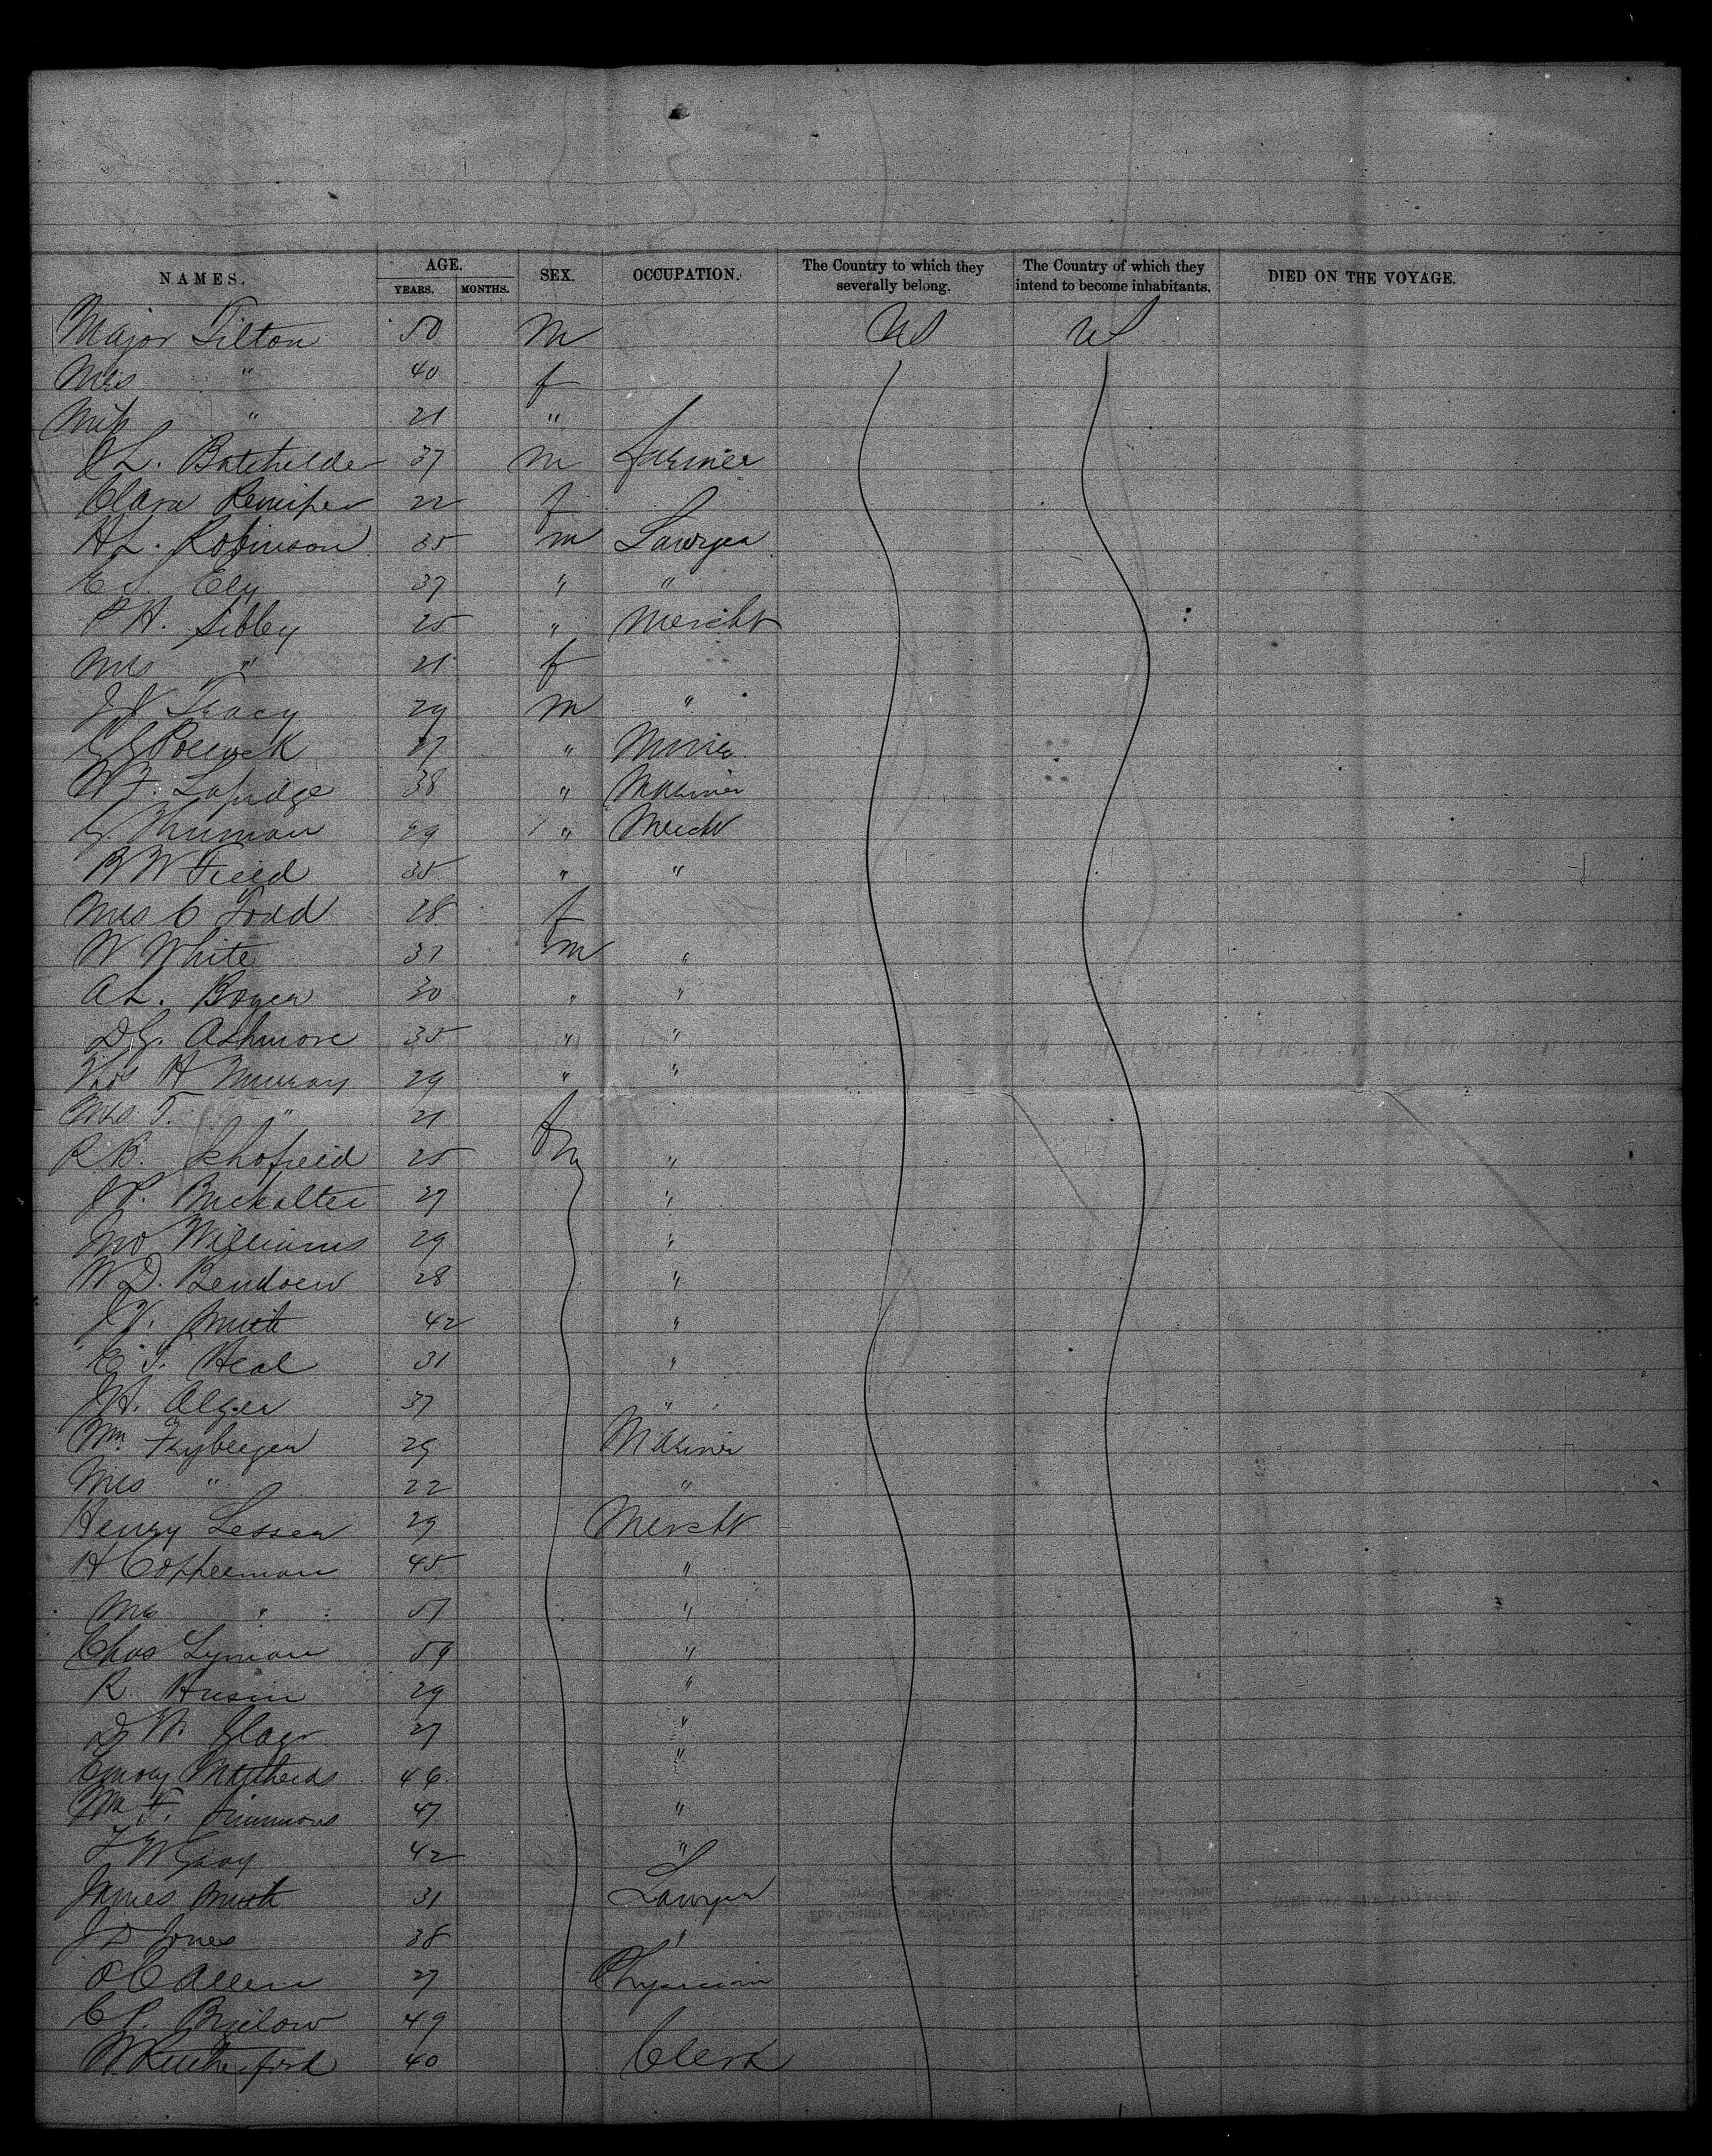 NAMES. AGE. SEX. OCCUPATION. The Country to which they severally belong. The Country of which they intend to become inhabitants. DIED ON THE VOYAGE.
YEARS. MONTHS.
Major Tilton 50 M US US
Mrs " 40 f
Miss " 21 "
J L. Batchelder 37 m farmer
Clara 22 f
H L. Robinson 35 m Lawyer
E S. Ely 37 " "
P H. Sibley 25 " Mercht
Mrs " 21 f
J Tracy 29 M "
Pocock 27 "
W F. Lapidge 38 " Mariner
G. Thurman 29 " Mercht
B W Field 35 " "
Mrs C Todd 28 f
W White 37 m "
A L. Boyer 30 " "
D G. Ashmore 35 " "
Thos H Murray 29 " "
Mrs T. " 21 f
R B. Schofield 25 m "
J P. Buckalter 27 "
Jno Williams 29 "
W D. 28 "
J V. Smith 42 "
E T. Heal 31 "
J H. Alger 37 "
Wm. Fryberger 29 Mariner
Mrs " 22 "
Henry Lesser 29 Mercht
H Copperman 45 "
Mrs " 57 "
Chas Lyman 59 "
R 29 "
D W. 27 "
Emory 46 "
Wm F. Simmons 47 "
F W Gray 42 "
James Smith 31 Lawyer
J D Jones 38 "
O C Allen 27 Physician
C P. Bigelow 49
W. Rutherford 40 Clerk